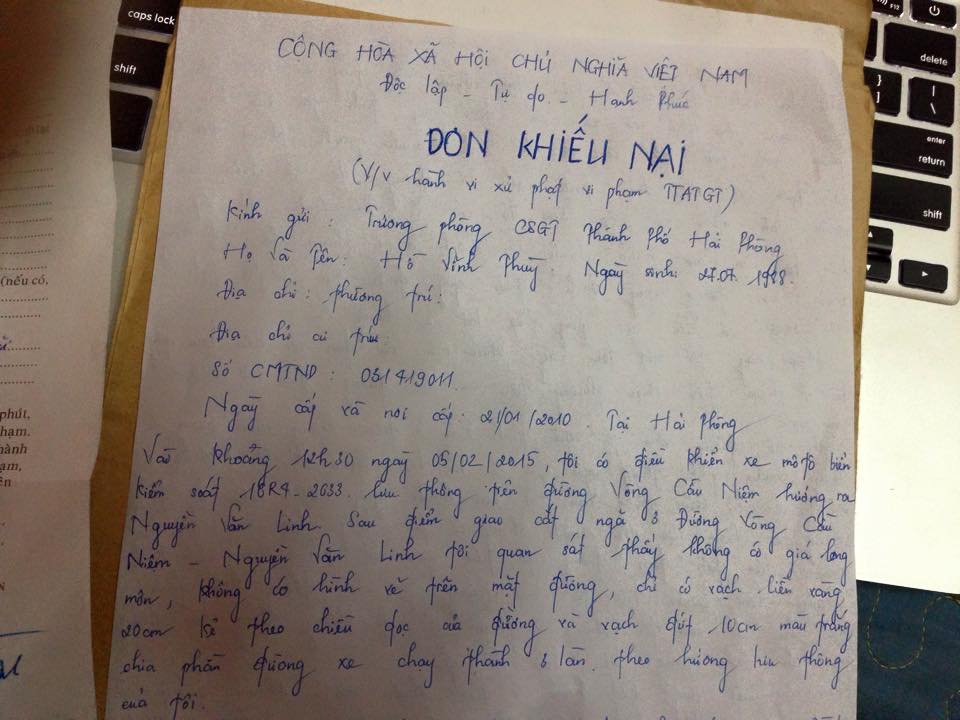 CỘNG HÒA XÃ HỘI CHỦ NGHĨA VIỆT NAM
Độc lập - Tự do - Hạnh Phúc
ĐƠN KHIẾU NẠI
(V/v hành vi xử phạt vi phạm TTATGT)
Kính gửi : Trưởng phòng CSGT Thành phố Hải Phòng
Họ và Tên: Hồ Vĩnh Thuỳ. Ngày sinh: 27.07. 1998.
Địa chỉ : thường trú :
Địa chỉ cư trú:
Số CMTND : 031419011
Ngày cấp và nơi cấp : 21/01/2010. Tại Hải Phòng
Vào khoảng 12h30 ngày 05/02/2015, tôi có điều khiển xe môtô biển
kiểm soát 16R4-2633. lưu thông trên đường Vòng Cầu Niệm hướng ra
Nguyễn Văn Linh. Sau điểm giao cắt ngã 3 Đường Vòng Cầu
Niệm - Nguyễn Văn Linh tôi quan sát thấy không có giá long
môn, không có hình vẽ trên mặt đường, chỉ có vạch liền vàng
20cm kẻ theo chiều dọc của đường và vạch đứt 10cm màu trắng
chia phần đường xe chạy thành 3 làn. theo hướng lưu thông
của tôi.
caps lock
shift
F12
delete
enter
return
shift
(nếu có,
phút,
hạm.
hành
ạm,
ện